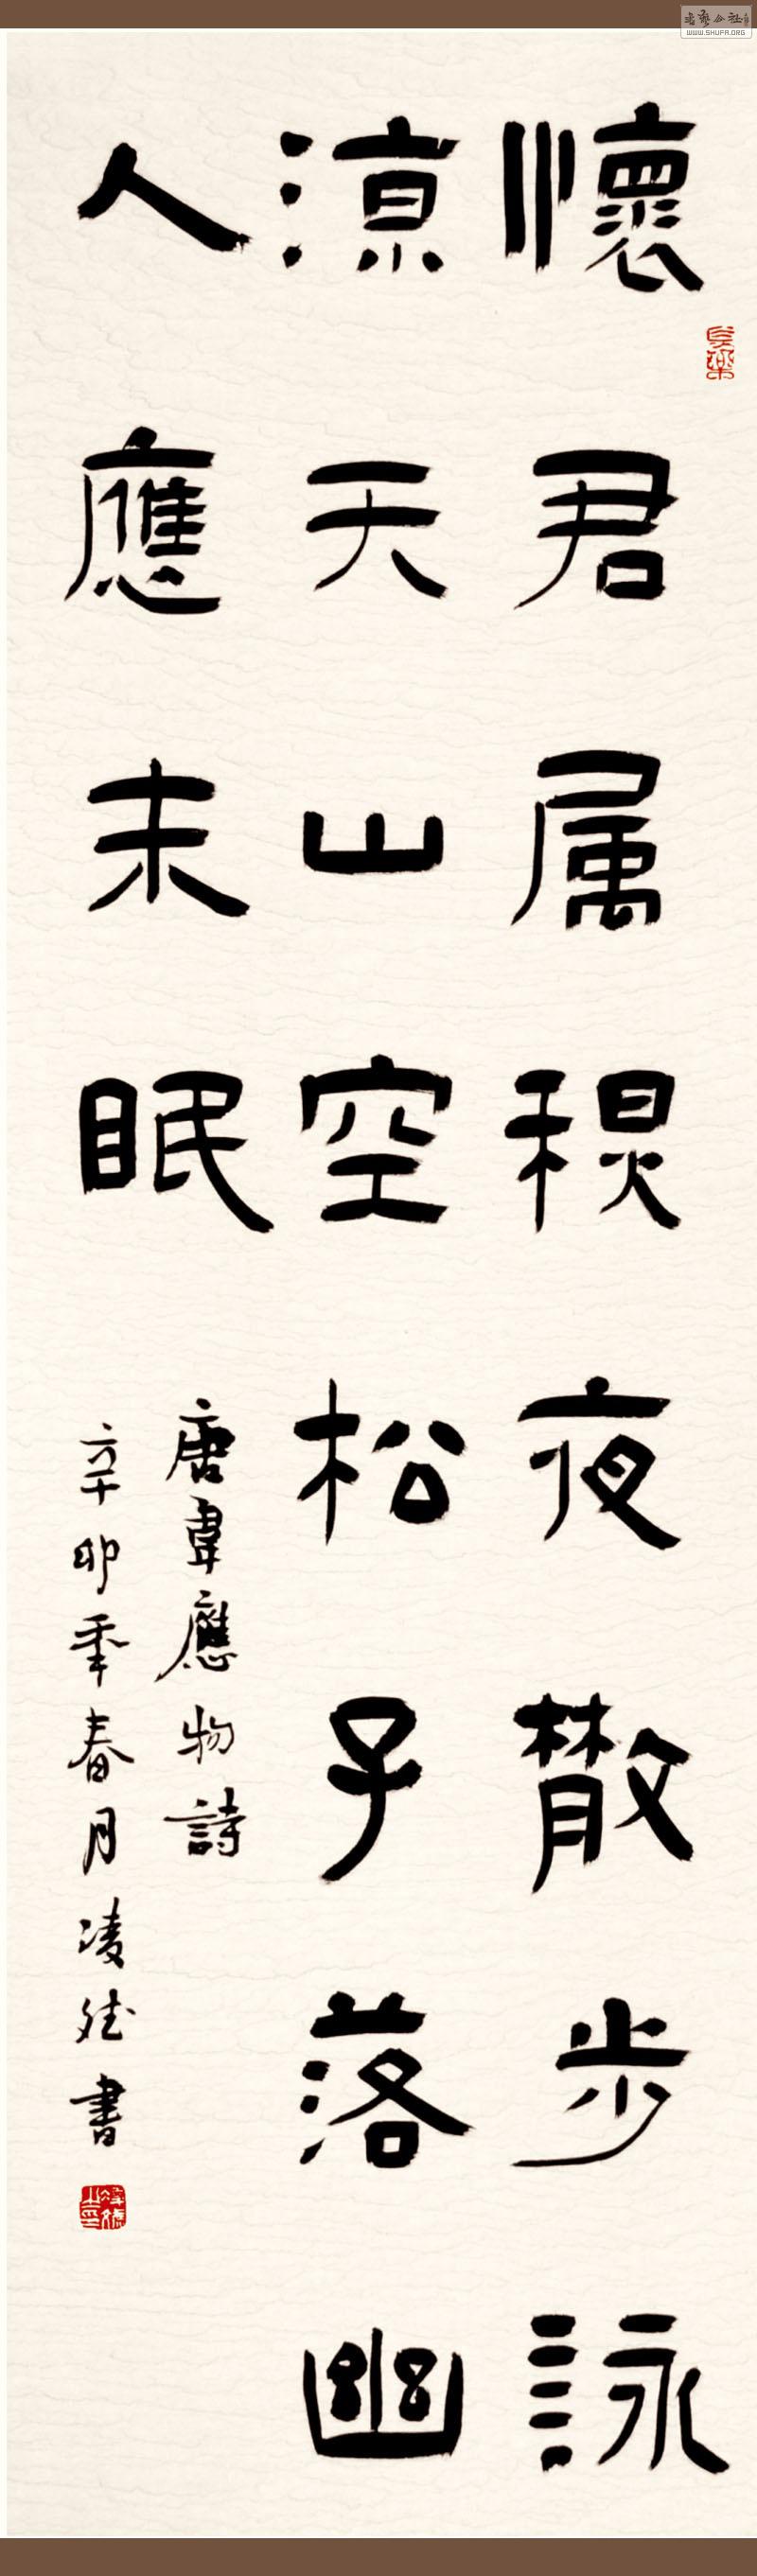 懷君属穏夜散步詠
涼天山空松子落幽
人應未眠
唐韋應物詩
辛卯年春月凌斌書
WWW.SHUFA.ORG